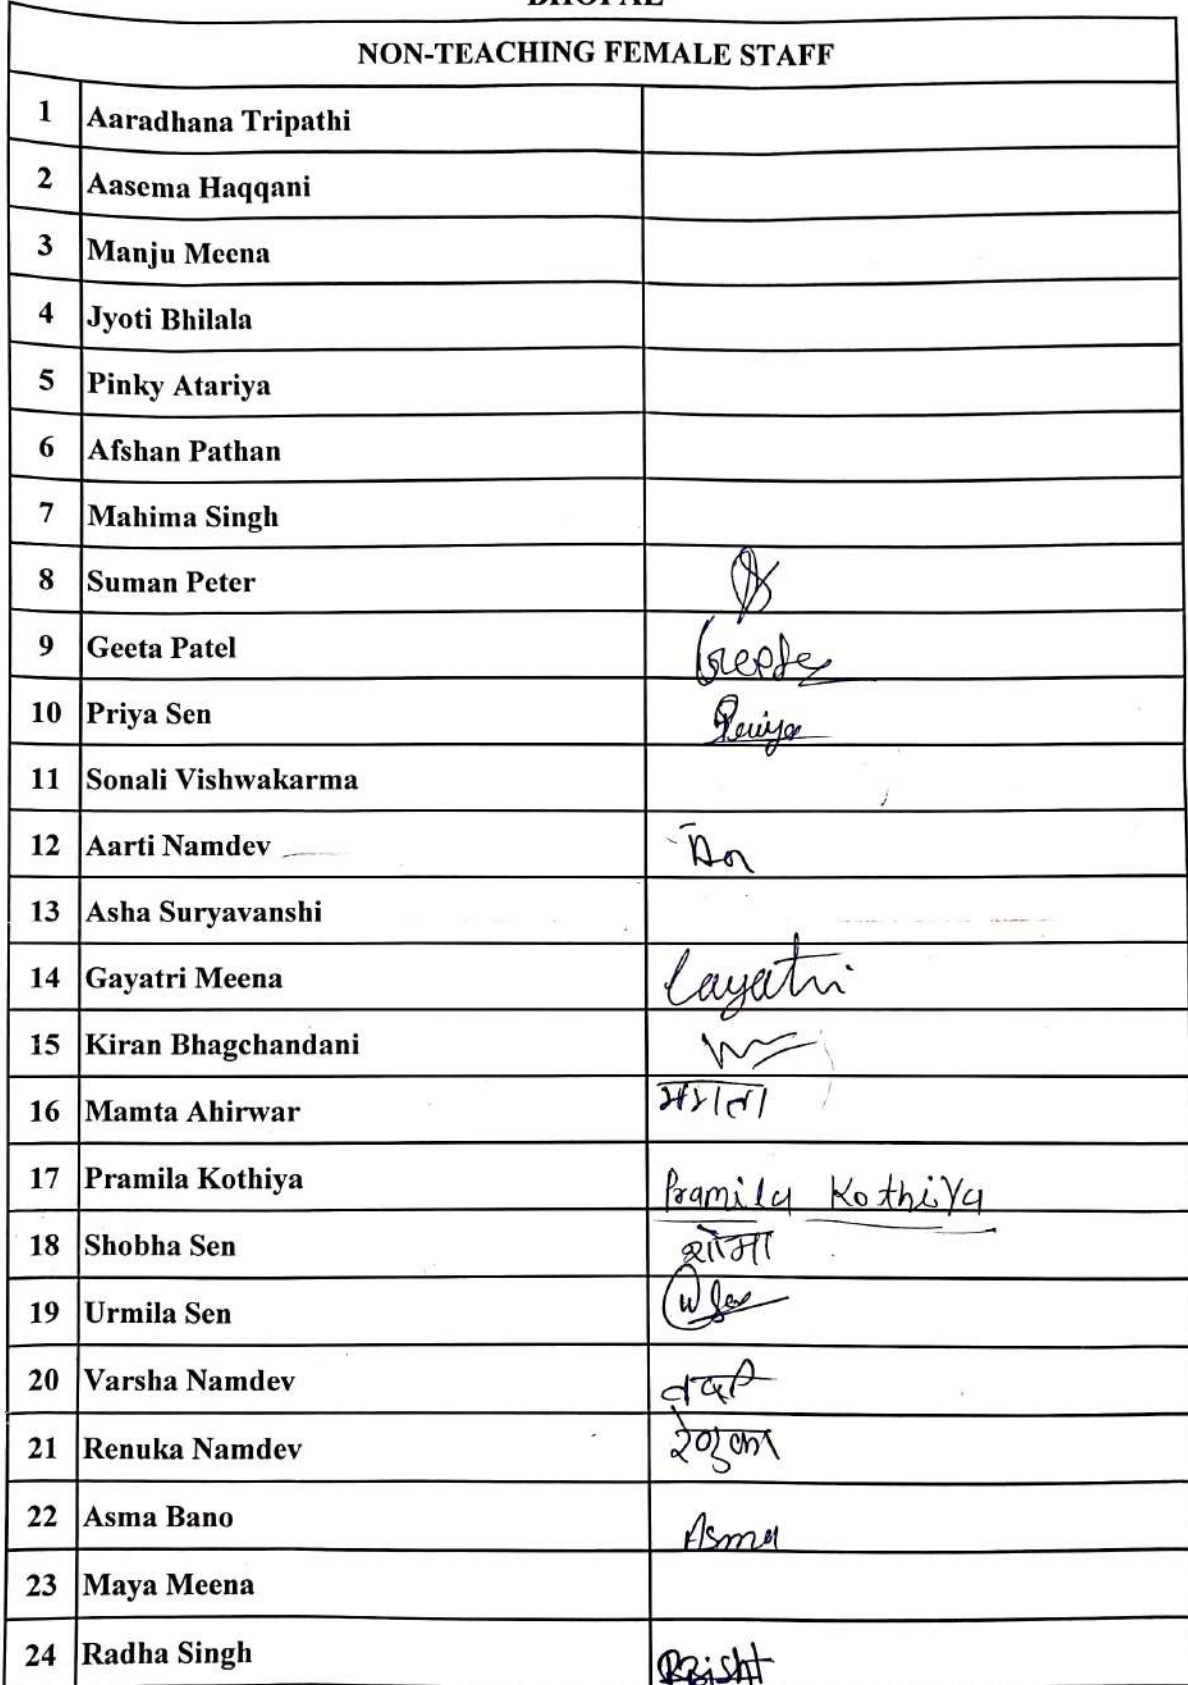 BHOPAL
NON-TEACHING FEMALE STAFF
1 Aaradhana Tripathi
2 Aasema Haqqani
3 Manju Meena
4 Jyoti Bhilala
5 Pinky Atariya
6 Afshan Pathan
7 Mahima Singh
8 Suman Peter
9 Geeta Patel Geeta
10 Priya Sen Priya
11 Sonali Vishwakarma
12 Aarti Namdev
13 Asha Suryavanshi
14 Gayatri Meena Gayatri
15 Kiran Bhagchandani
16 Mamta Ahirwar ममता
17 Pramila Kothiya Pramila Kothiya
18 Shobha Sen शोभा
19 Urmila Sen
20 Varsha Namdev वर्षा
21 Renuka Namdev रेणुका
22 Asma Bano Asma
23 Maya Meena
24 Radha Singh RBisht